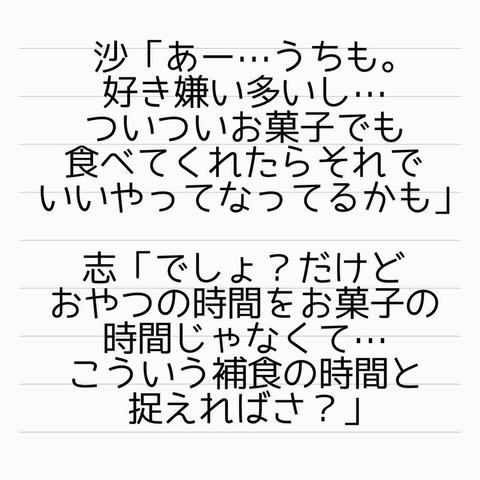 沙「あー…うちも。
好き嫌い多いし…
ついついお菓子でも
食べてくれたらそれで
いいやってなってるかも」
志「でしょ？だけど
おやつの時間をお菓子の
時間じゃなくて…
こういう補食の時間と
捉えればさ？」